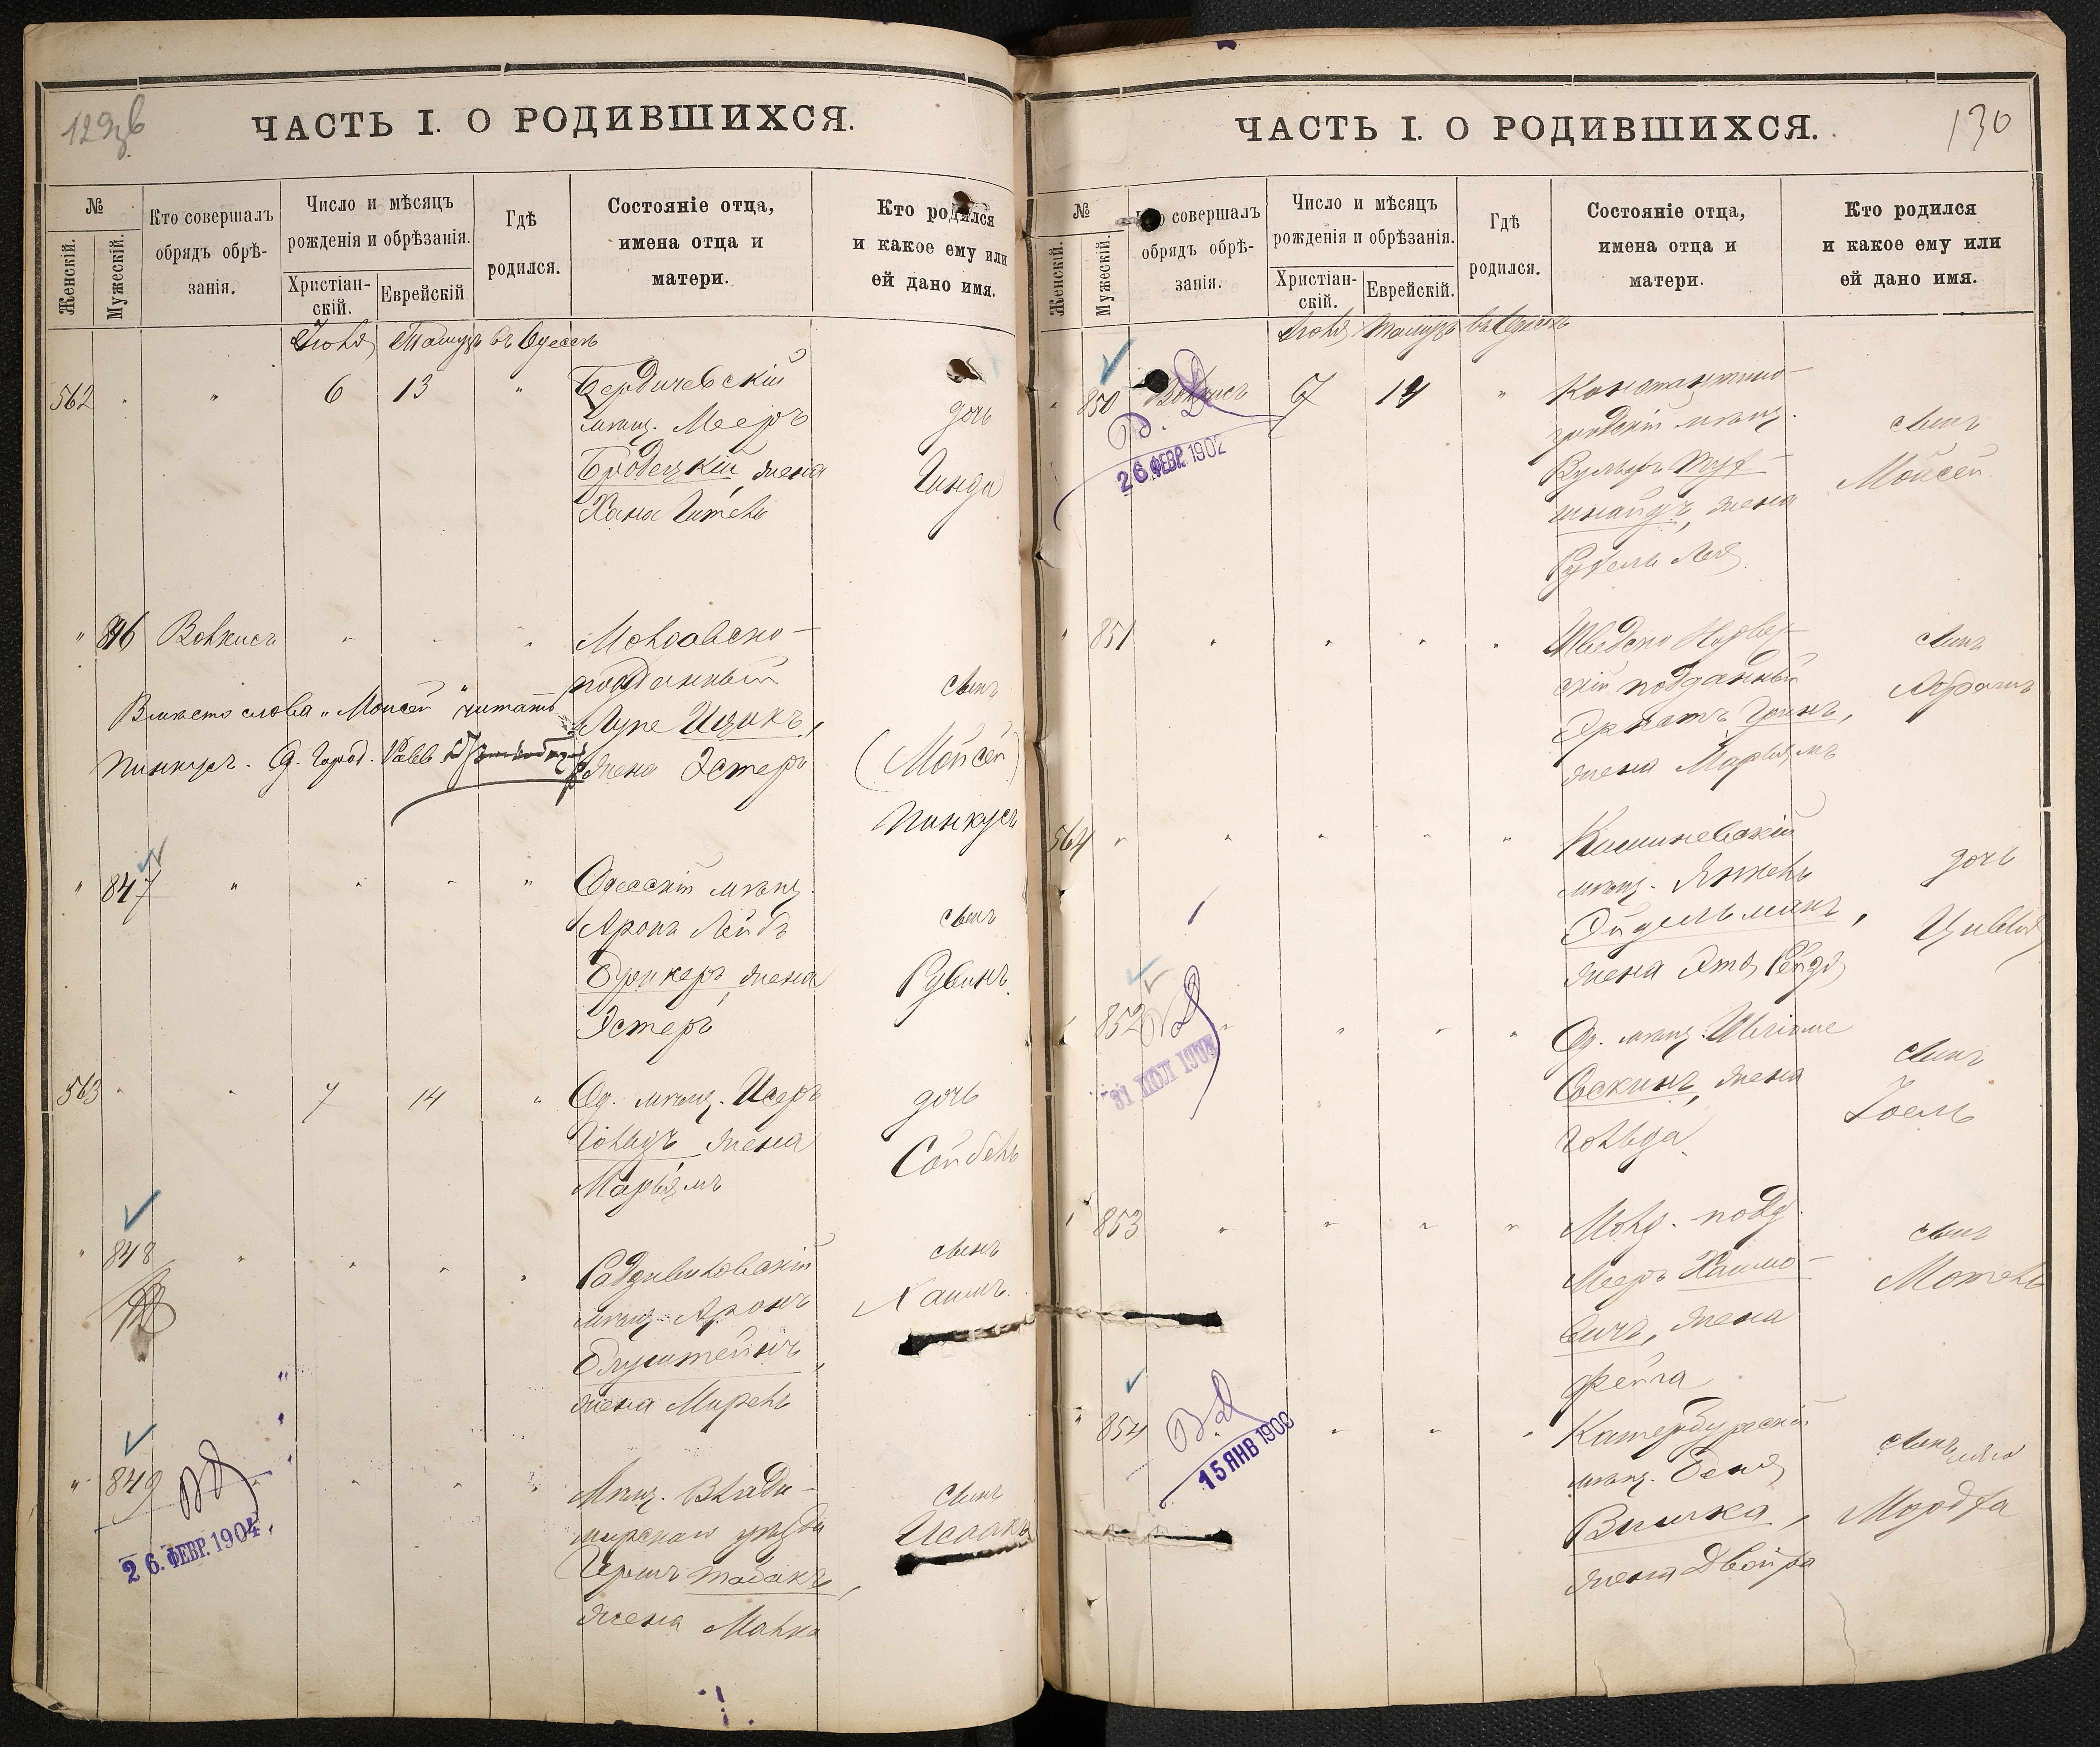 129об
ЧАСТЬ I. О РОДИВШИХСЯ.
№
Женскій.
Мужескій.
Кто совершалъ
обрядъ обрѣ-
занія.
Число и мѣсяцъ
рожденія и обрѣзанія.
Христіан-
скій.
Еврейскій
Гдѣ
родился.
Состояніе отца,
имена отца и
матери.
Кто родился
и какое ему или
ей дано имя.
Іюля Тамузъ въ Одессѣ
562 " " 6 13 " Бердичевскій
мѣщ. Мееръ
Бродецкій, жена
Хана Гитель
дочь
Гинда
" 846 Волкисъ " " " Молдавско-
подданный
Лупе Ицикъ,
жена Эстеръ
сынъ
(Мойсей)
Пинкусъ
Вмѣсто слова „Моисей" читать
Пинкусъ. О. Город. Равв.
" 847 " " " " Одесскій мѣщ.
Аронъ Лейбъ
Брикеръ, жена
Эстеръ
сынъ
Рувинъ.
563 " " 7 14 " Од. мѣщ. Исеръ
Гольдъ, жена
Марьямъ
дочь
Сойбель
" 848 " " " " Радзивиловскій
мѣщ. Аронъ
Глуштейнъ,
жена Мирель
сынъ
Хаимъ.
" 849 " " " Мѣщ. Влади-
мирскаго уѣзда
Гершъ Табакъ,
жена Малка
сынъ
Исаакъ
26. ФЕВР. 1904
130
ЧАСТЬ I. О РОДИВШИХСЯ.
№
Женскій.
Мужескій.
Кто совершалъ
обрядъ обрѣ-
занія.
Число и мѣсяцъ
рожденія и обрѣзанія.
Христіан-
скій.
Еврейскій.
Гдѣ
родился.
Состояніе отца,
имена отца и
матери.
Кто родился
и какое ему или
ей дано имя.
Іюля Тамузъ въ Одессѣ
" 850 Волкисъ 7 14 " Константино-
градскій мѣщ.
Вульфъ
жена
Рухель Лея
сынъ
Мойсей
26 ФЕВР. 1902
" 851 " " " " Шведско Норвеж-
скій подданный
Гринъ,
жена Марьямъ
сынъ
Абрамъ
564 " " " " " Кишиневскій
мѣщ. Янкель
Эйдельманъ,
жена Рейзя
дочь
Цивья
" 852 " " " " Од. мѣщ. Шліоме
Соскинъ, жена
Гольда.
сынъ
Іоель
" 853 " " " " Молд. подд.
Мееръ Хаимо-
вичъ, жена
Фейга
сынъ
Мотель
" 854 " " " Катербургскій
мѣщ. Беня
Вишка,
жена Двойра
сынъ
имя
Мордха
15 ЯНВ 1900